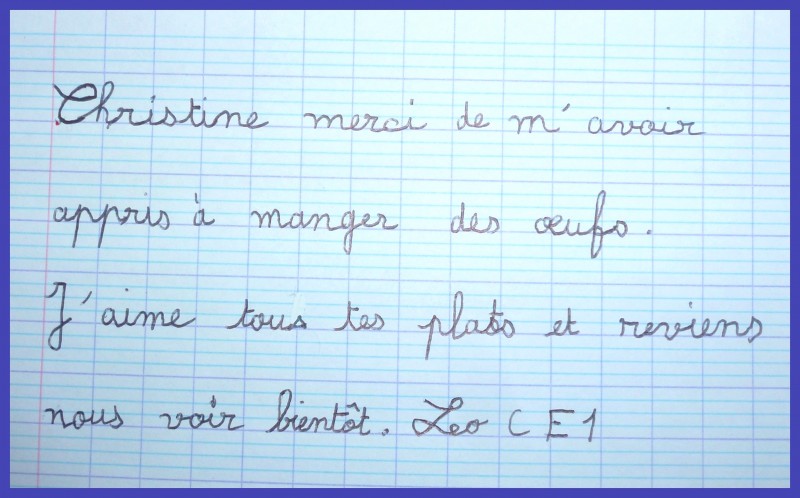 Christine merci de m'avoir
appris à manger des œufs.
J'aime tous tes plats et reviens
nous voir bientôt. Leo CE1